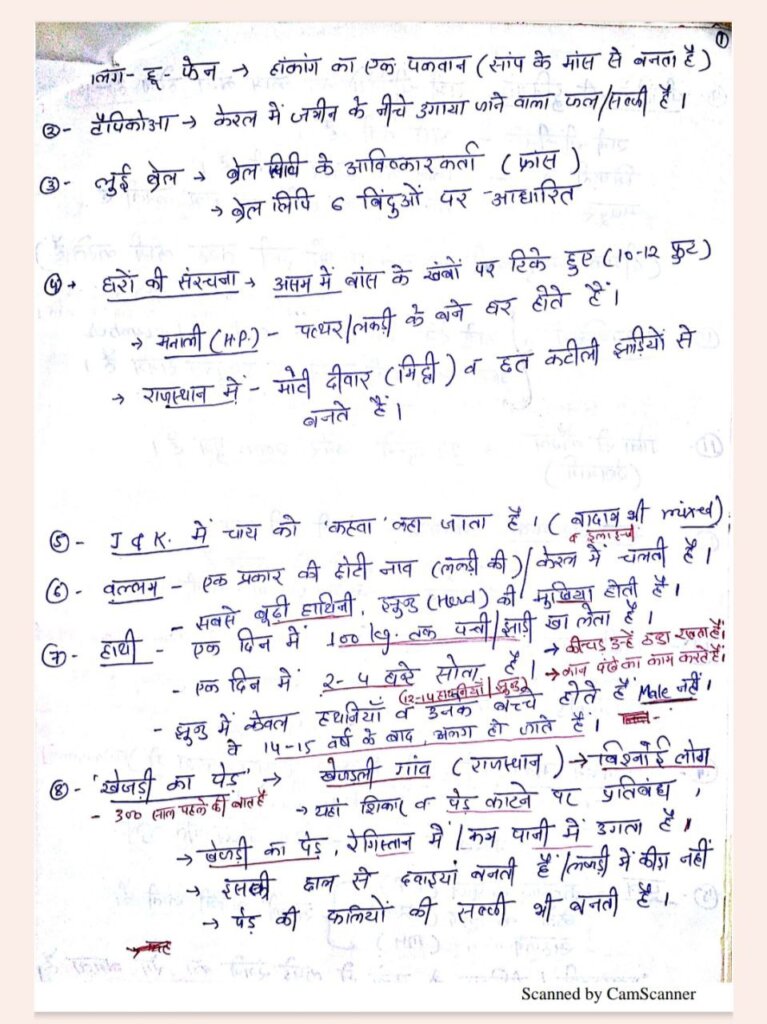 ①
लिंग- हू- फेन → हांकांग का एक पकवान (सांप के मांस से बनता है)
②- टैपिकोआ → केरल में जमीन के नीचे उगाया जाने वाला फल/सब्जी है।
③- लुई ब्रेल → ब्रेल लिपि के आविष्कारकर्ता (फ्रांस)
→ ब्रेल लिपि 6 बिंदुओं पर आधारित
④→ घरों की संरचना → असम में बांस के खंबों पर टिके हुए (10-12 फुट)
→ मनाली (H.P.) - पत्थर/लकड़ी के बने घर होते हैं।
→ राजस्थान में - मोटी दीवार (मिट्टी) व छत कटीली झाड़ियों से
बनते हैं।
⑤- J & K. में चाय को 'कहवा' कहा जाता है। (बादाम भी mixed)
व इलाइची
⑥- वल्लम - एक प्रकार की छोटी नाव (लकड़ी की)/केरल में चलती है।
- सबसे बूढ़ी हाथिनी, झुण्ड (Herd) की मुखिया होती है।
⑦- हाथी - एक दिन में 100 kg. तक पत्ती/झाड़ी खा लेता है।
→ कीचड़ उन्हें ठंडा रखता है।
- एक दिन में 2-4 घण्टे सोता है।
→ कान पंखे का काम करते हैं।
(12-14 हथनियाँ/झुण्ड)
- झुण्ड में केवल हथनियाँ व उनके बच्चे होते हैं Male नहीं।
वे 14-15 वर्ष के बाद, अलग हो जाते हैं।
⑧- 'खेजड़ी का पेड़' → खेजडली गांव (राजस्थान) → बिश्नोई लोग
- 300 साल पहले की बात है
→ यहां शिकार व पेड़ काटने पर प्रतिबंध,
→ खेजड़ी का पेड़, रेगिस्तान में/कम पानी में उगता है।
→ इसकी छाल से दवाइयां बनती हैं/लकड़ी में कीड़ा नहीं
→ पेड़ की फलियों की सब्जी भी बनती है।
Scanned by CamScanner